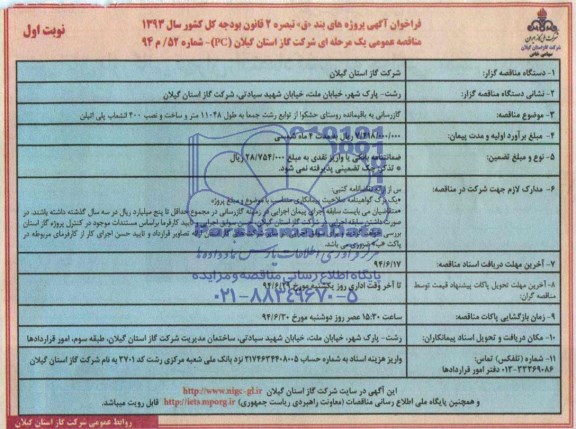 فراخوان آگهی پروژه های بند «ق» تبصره ۲ قانون بودجه کل کشور سال ۱۳۹۳
مناقصه عمومی یک مرحله ای شرکت گاز استان گیلان (PC)- شماره ۵۲/م ۹۴
نوبت اول
شرکت گاز استان گیلان
سهامی خاص
۱- دستگاه مناقصه گزار:
شرکت گاز استان گیلان
۲- نشانی دستگاه مناقصه گزار:
رشت- پارک شهر، خیابان ملت، خیابان شهید سیادتی، شرکت گاز استان گیلان
۳- موضوع مناقصه:
گازرسانی به باقیمانده روستای خشکوا از توابع رشت جمعا به طول ۱۱۰۴۸ متر و ساخت و نصب ۲۰۰ انشعاب پلی اتیلن
۴- مبلغ برآورد اولیه و مدت پیمان:
ریال به مدت ۴ ماه شمسی
۵- نوع و مبلغ تضمین:
ضمانتنامه بانکی یا واریز نقدی به مبلغ ۲۸/۷۵۴/۰۰۰ ریال
* تذکر: چک تضمینی پذیرفته نمی شود.
۶- مدارک لازم جهت شرکت در مناقصه:
پس از ارائه تقاضانامه کتبی:
*یک برگ گواهینامه صلاحیت پیمانکاری متناسب با موضوع و مبلغ پروژه
*متقاضیان می بایست سابقه اجرای پیمان اجرایی در زمینه گازرسانی در مجموع حداقل تا پنج میلیارد ریال در سه سال گذشته داشته باشند. در
پاکت «ب» ضروری می باشد.
۷- آخرین مهلت دریافت اسناد مناقصه:
۹۴/۶/۱۷
۸- آخرین مهلت تحویل پاکات پیشنهاد قیمت توسط مناقصه گران:
تا آخر وقت اداری روز یکشنبه مورخ ۹۴/۶/۲۹
۹- زمان بازگشایی پاکات مناقصه:
ساعت ۱۵:۳۰ عصر روز دوشنبه مورخ ۹۴/۶/۳۰
۱۰- مکان دریافت و تحویل اسناد پیمانکاران:
رشت- پارک شهر، خیابان ملت، خیابان شهید سیادتی، ساختمان مدیریت شرکت گاز استان گیلان، طبقه سوم، امور قراردادها
۱۱- شماره (تلفکس) تماس:
۰۱۳-۳۳۳۶۹۰۸۶ دفتر امور قراردادها
واریز هزینه اسناد به شماره حساب ۲۱۷۴۶۳۴۴۰۸۰۰۵ نزد بانک ملی شعبه مرکزی رشت کد ۳۷۰۱ به نام شرکت گاز استان گیلان
ParsNamadData
پایگاه اطلاع رسانی مناقصه و مزایده
۰۲۱-۸۸۳۴۹۶۷۰-۵
این آگهی در سایت شرکت گاز استان گیلان http://www.nigc-gl.ir
و همچنین پایگاه ملی اطلاع رسانی مناقصات (معاونت راهبردی ریاست جمهوری) http://iets.mporg.ir قابل رویت میباشد.
روابط عمومی شرکت گاز استان گیلان